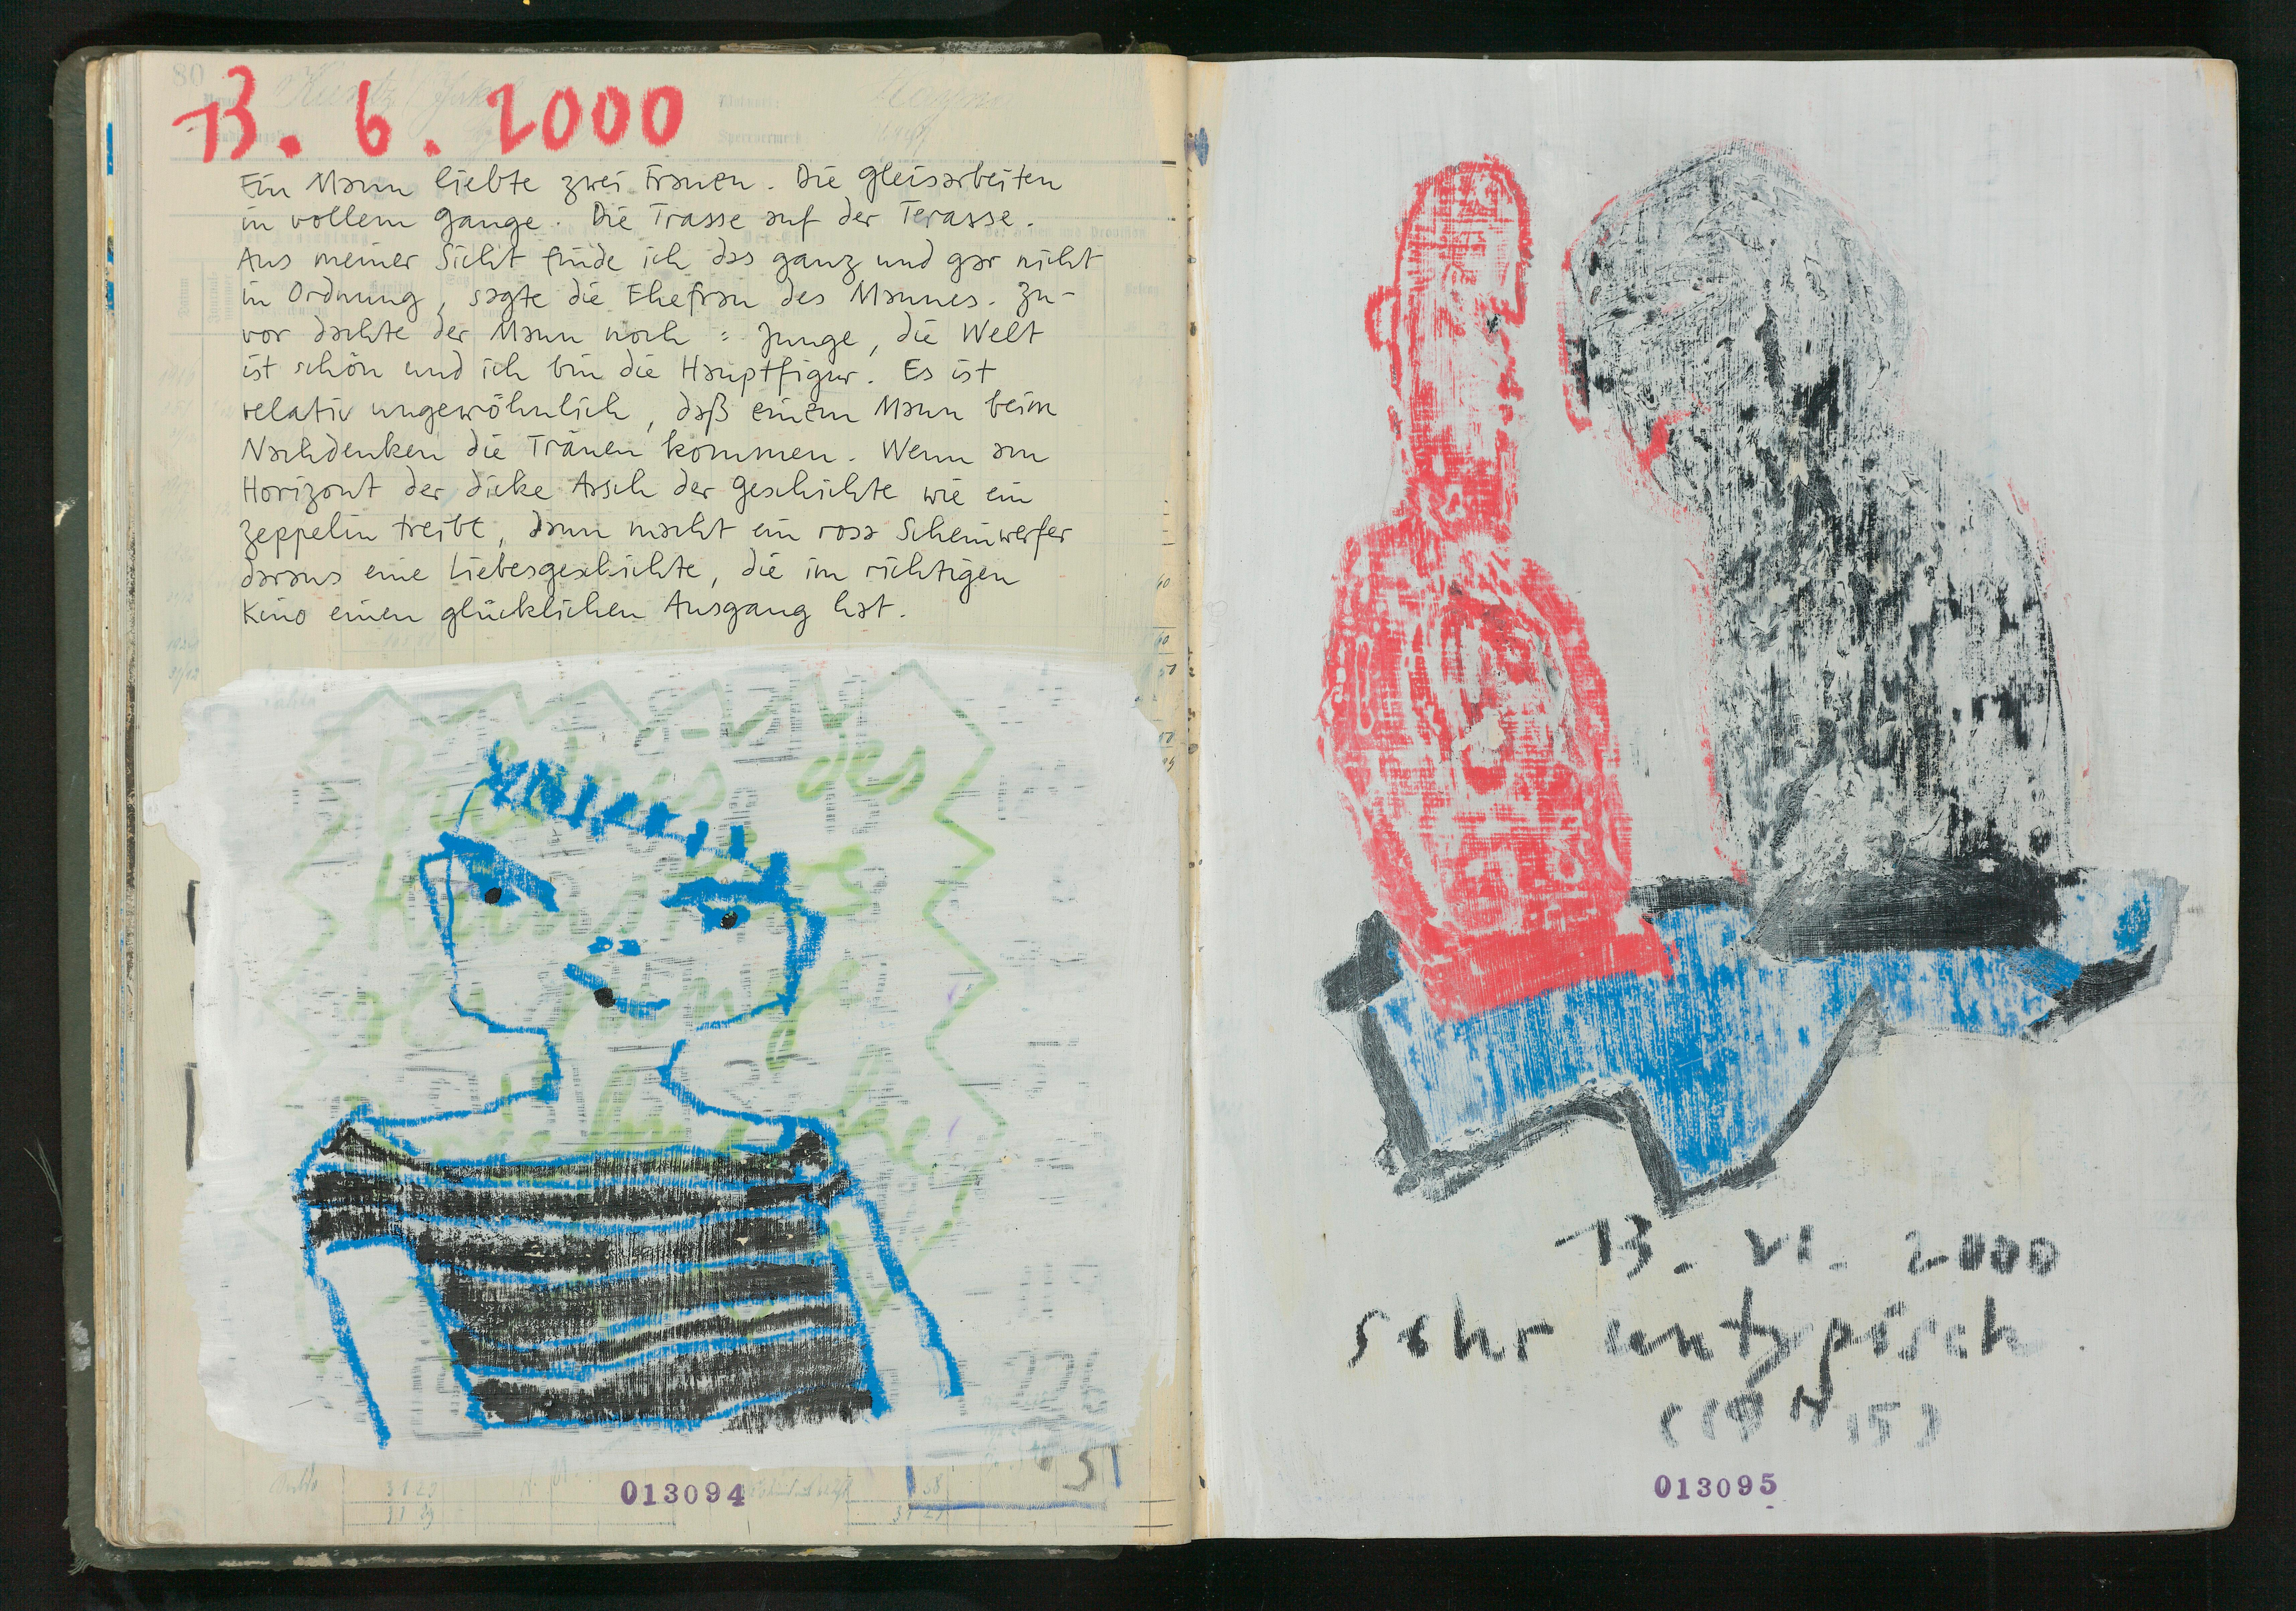 80
13. 6. 2000
Ein Mann liebte zwei Frauen. Die Gleisarbeiten
in vollem Gange. Die Trasse auf der Terasse.
Aus meiner Sicht finde ich das ganz und gar nicht
in Ordnung, sagte die Ehefrau des Mannes. Zu-
vor dachte der Mann noch: Junge, die Welt
ist schön und ich bin die Hauptfigur. Es ist
relativ ungewöhnlich, daß einem Mann beim
Nachdenken die Tränen kommen. Wenn am
Horizont der dicke Arsch der Geschichte wie ein
Zeppelin treibt, dann macht ein rosa Scheinwerfer
daraus eine Liebesgeschichte, die im richtigen
Kino einen glücklichen Ausgang hat.
des
als junge
013094
13. VI. 2000
sehr untypisch.
013095